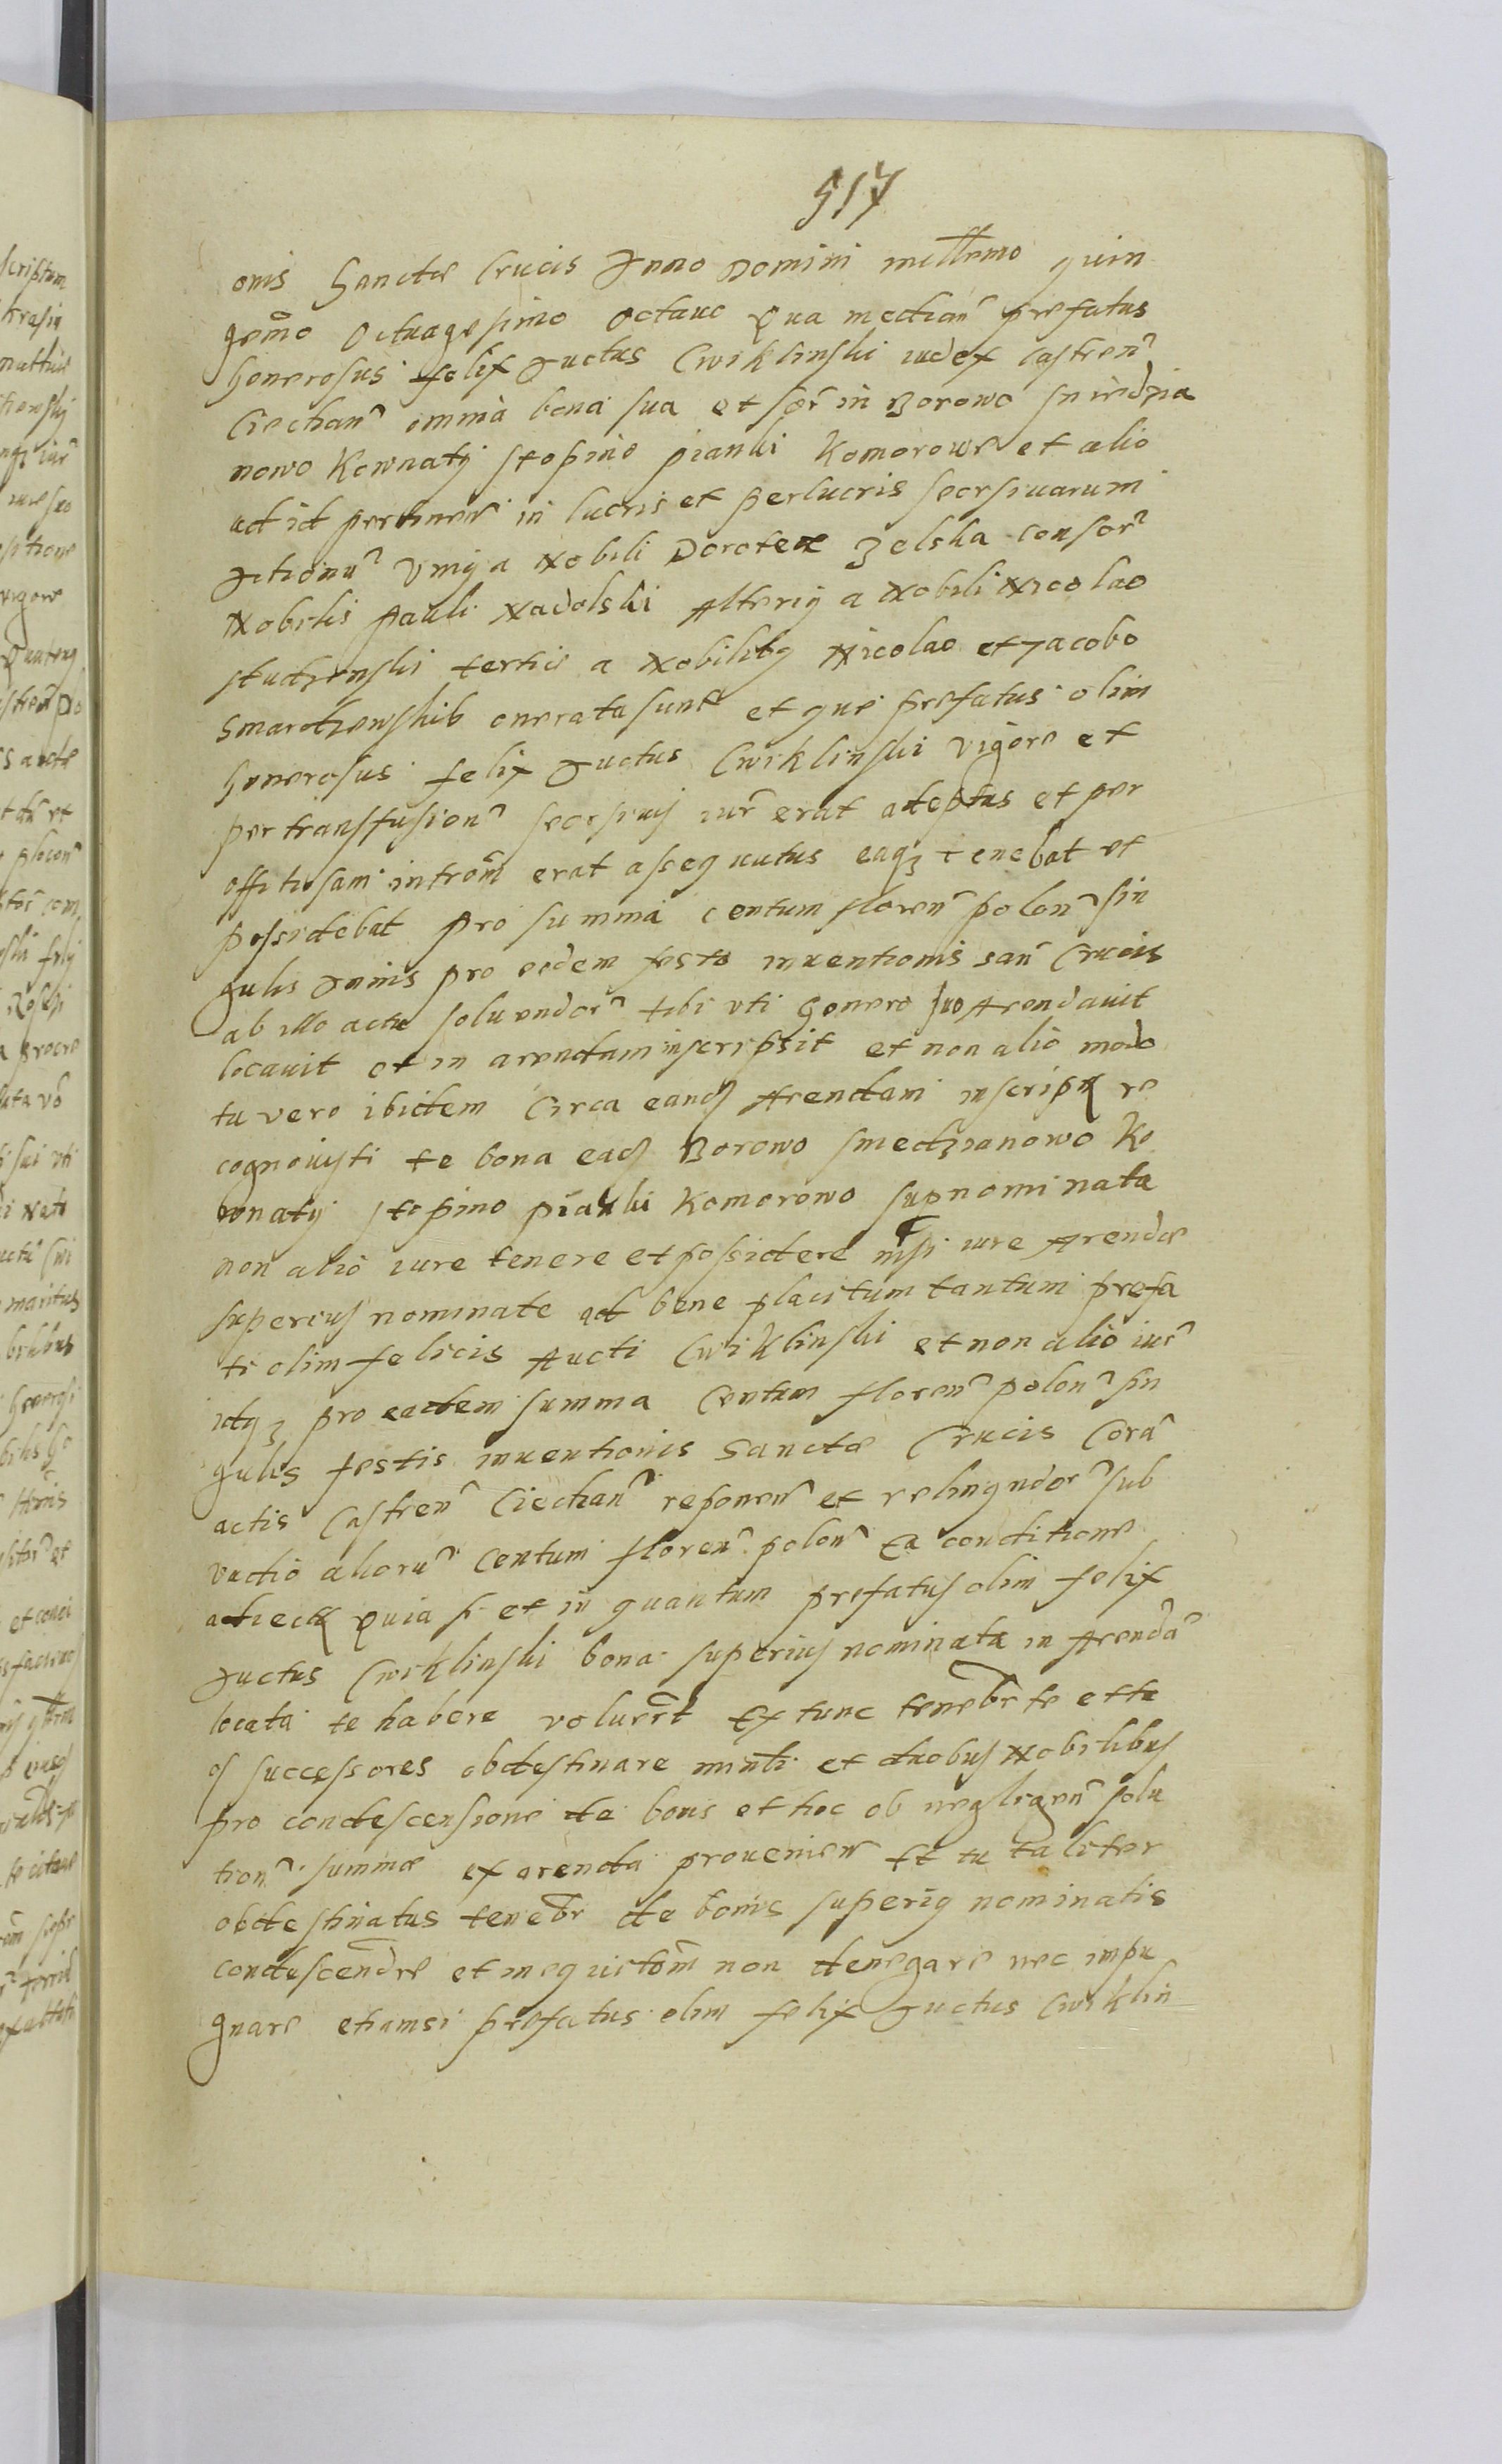 517
onis Sanctae Crucis Anno Domini millemo quin
gemo Octuagesimo Octauo Qua mediañ prefatus
Generosus felix Auctus Cwiklinski iudex castreñ
Ciechañ omnia bona sua et sor in Borowo smiedzia
nowo Kownaty stopino pianki Komorowo et alio
ad id pertineñ in lucris et perlucris seorsiuarum
Actionu Vnius a Nobili Dorotea Zelska consor
Nobilis Pauli Nadolski Alterius a Nobili Nicolao
studzenski tertie a Nobilibus Nicolao et Jacobo
Smardzewskib onerata sunt et que prefatus olim
Generosus felix Auctus Cwiklinski vigore et
per transfusioñ seorsiuis iur erat adeptus et per
offitiosam introm erat assequutus eaqz tenebat et
possidebat pro summa centum floreñ poloñ sin
gulis Annis pro eodem festo inuentionis sañ Crucis
ab illo actu soluendor tibi vti Genero suo Arendauit
locauit et in arendam inscripsit et non alio modo
tu vero ibidem Circa eand Arendam inscript re
cognouisti te bona ead Borowo smedzianowo Ko
wnaty stopino pianki Komorowo supnominata
non alio iure tenere et possidere nisi iure Arendae
superius nominate ad bene placitum tantum prefa
ti olim felicis Aucti Cwiklinski et non alio iur
idqz pro eadem summa Centum floreñ poloñ sin
gulis festis inuentionis Sanctae Crucis Corã
actis Castreñ Ciechañ reponeñ et relinqndor sub
vadio alioru Centum floreñ poloñ Ea conditione
adiect Quia si et in quantum prefatus olim felix
Auctus Cwiklinski bona superius nominata in Arendã
locata te habere voluerit Ex tunc tenebr te et tu
os successores obdestinare minli et duobus Nobilibus
pro condescensione de bonis et hoc ob negligeñ solu
tioñ summae ex arenda prouenieñ Et tu taliter
obdestinatus tenebr de bonis superius nominatis
condescendre et inequitom non denegare nec impu
gnare etiamsi prefatus olim felix Auctus Cwiklin